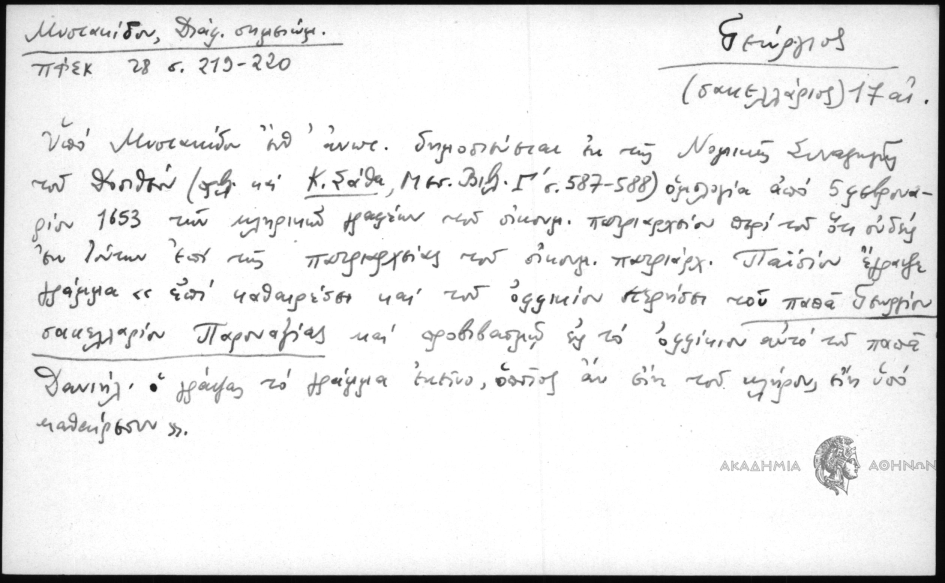 Μυστακίδου, Διάφ. σημειώμ.
ΠΦΕΚ 28 σ. 219-220
Γεώργιος
(σακελλάριος) 17 αἰ.
Ὑπό Μυστακίδου ἔνθ' ἀνωτ. δημοσιεύεται ἐκ τῆς Νομικῆς Συναγωγῆς
τοῦ Δοσιθέου (πρβλ. καί Κ. Σάθα, Μεσ. Βιβλ. Γ' σ. 587-588) ὁμολογία ἀπό 5 φεβρουα-
ρίου 1653 τῶν κληρικῶν γραφέων τοῦ οἰκουμ. πατριαρχείου περί τοῦ ὅτι οὐδείς
ἐκ τούτων ἐπί τῆς πατριαρχείας τοῦ οἰκουμ. πατριάρχ. Παϊσίου ἔγραψε
γράμμα « ἐπί καθαιρέσει καί τοῦ ὀφφικίου στερήσει τοῦ παπᾶ Γεωργίου
σακελλαρίου Παροναξίας καί προβιβασμῷ εἰς τό ὀφφίκιον αὐτό τοῦ παπᾶ
Δανιήλ· ὁ γράψας τό γράμμα ἐκεῖνο, ὁποῖος ἄν εἴη τοῦ κλήρου, εἴη ὑπό
καθαίρεσιν ».
ΑΚΑΔΗΜΙΑ ΑΘΗΝΩΝ